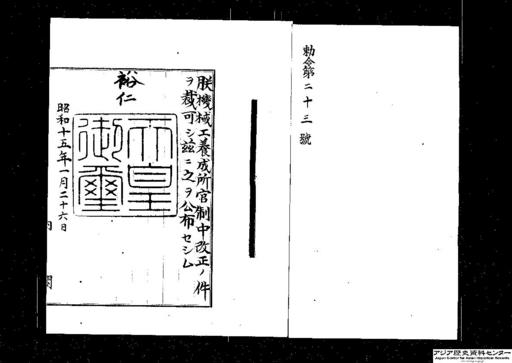 勅令第二十三號
朕機械工養成所官制中改正ノ件
ヲ裁可シ茲ニ之ヲ公布セシム
裕仁
天皇
御璽
昭和十五年一月二十六日
内閣
アジア歴史資料センター
Japan Center for Asian Historical Records